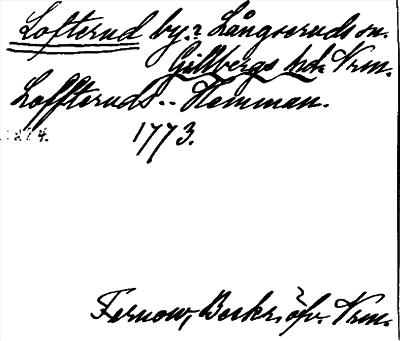 Lofterud by.? Långseruds sn.
Gillbergs hd. Vrm.
Loffteruds.. Hemman.
1773.
Fernow, Beskr. öfv. Vrm.